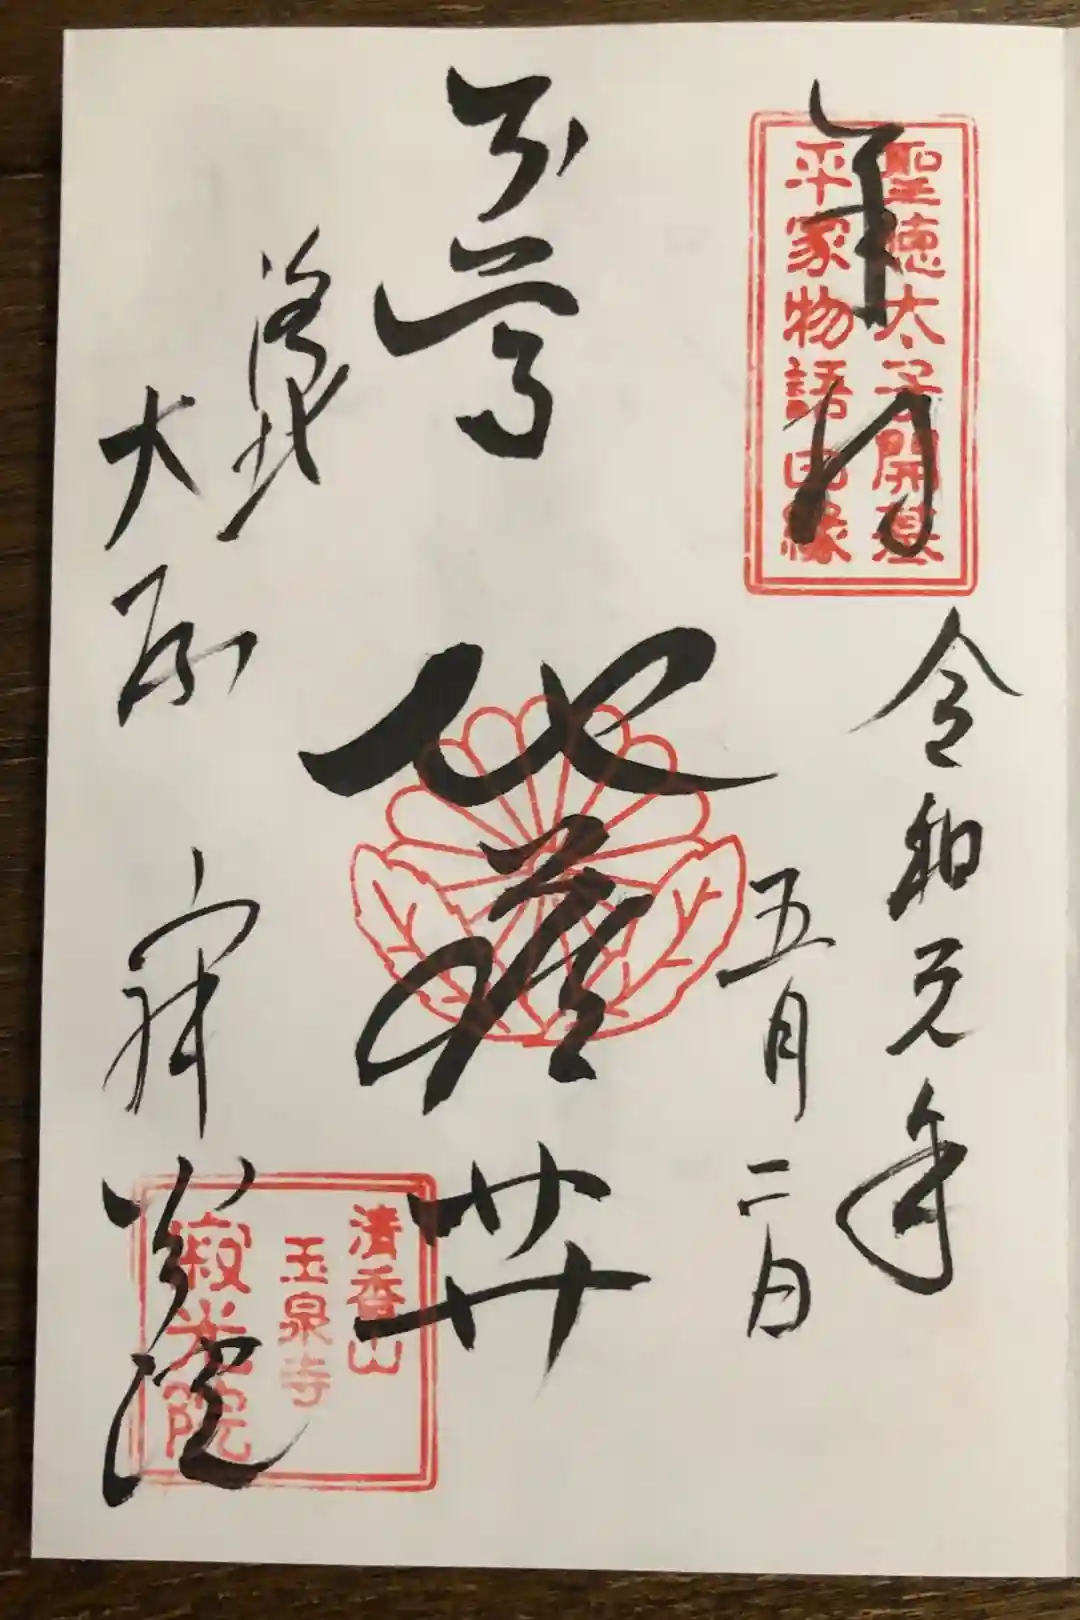 奉拝
聖徳太子開基
平家物語因縁
令和元年
五月二日
本尊
地蔵𦬇
洛北
大原
寂光院
清香山
玉泉寺
寂光院